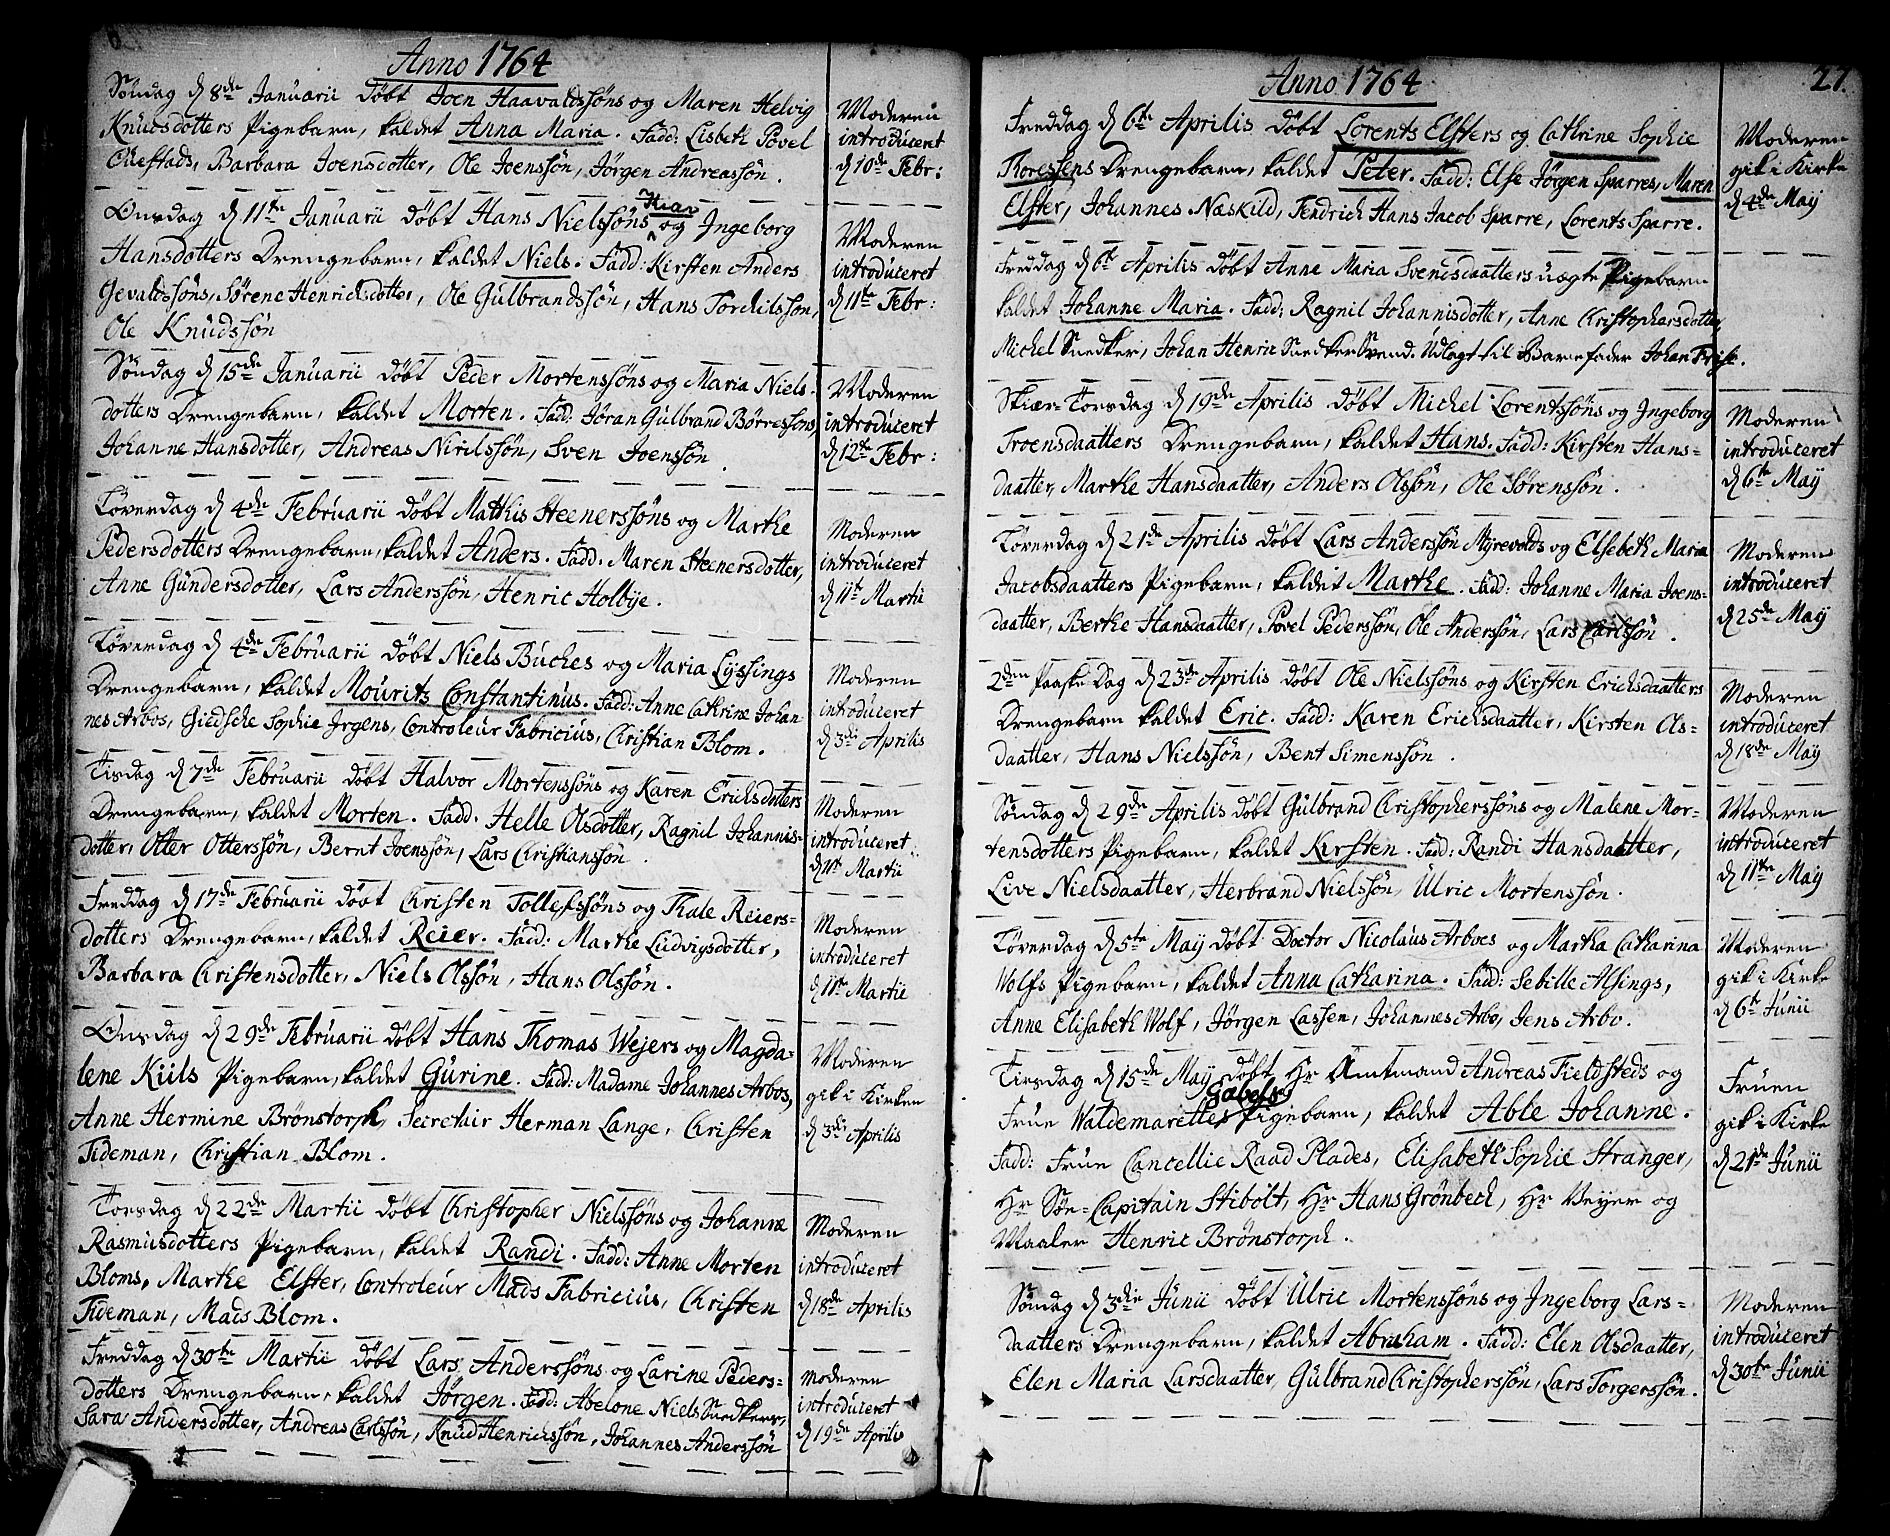 Anno 1764
Søndag d. 8de Januarii døbt Joen Haavaldssøns og Maren Helvig
Knudsdotters Pigebarn, kaldet Anna Maria. Fadd: Lisbeth Povel
Barbara Joensdotter, Ole Joenssøn, Jørgen Andreassøn.
Moderen
introduceret
d. 10de Febr:
Onsdag d. 11te Januarii døbt Hans Nielssøns og Ingeborg
Hansdotters Drengebarn, kaldet Niels. Fadd: Kirsten Anders
Gevaldssøns, Sørene Henrichsdotter, Ole Gulbrandssøn, Hans Torchilssøn,
Ole Knudssøn
Moderen
introduceret
d. 11te Febr:
Søndag d. 15de Januarii døbt Peder Mortenssøns og Maria Niels-
dotters Drengebarn, kaldet Morten. Fadd: Jøran Gulbrand Børressøns,
Johanne Hansdotter, Andreas Nirilssøn, Sven Joenssøn.
Moderen
introduceret
d. 12te Febr:
Løverdag d. 4de Februarii døbt Mathis Steenerssøns og Marthe
Pedersdotters Drengebarn, kaldet Anders. Fadd: Maren Steenersdotter,
Anne Gundersdotter, Lars Anderssøn, Henric Holbye.
Moderen
introduceret
d. 11te Martii
Løverdag d. 4de Februarii døbt Niels Buches og Maria Lyssings
Drengebarn, kaldet Mourits Constantinus. Fadd: Anne Cathrine Johan
nes Arbos, Giedsche Sophie Irgens, Controleur Fabricius, Christian Blom.
Moderen
introduceret
d. 3die Aprilis
Tisdag d. 7de Februarii døbt Halvor Mortenssøns og Karen Erichsdotters
Drengebarn, kaldet Morten. Fadd: Helle Olsdotter, Ragnil Johannis-
dotter, Otter Otterssøn, Bernt Joenssøn, Lars Christianssøn.
Moderen
introduceret
d. 11te Martii
Freddag d. 17de Februarii døbt Christen Tollefssøns og Thale Reiers-
dotters Drengebarn, kaldet Reier. Fadd: Marthe Ludvigsdotter,
Barbara Christensdotter, Niels Olssøn, Hans Olssøn.
Moderen
introduceret
d. 11te Martii
Onsdag d. 29de Februarii døbt Hans Thomas Wejers og Magda-
lene Kiils Pigebarn, kaldet Gurine. Fadd: Madame Johannes Arbos,
Anne Hermine Brønstorph, Secretair Herman Lange, Christen
Tideman, Christian Blom.
Moderen
gik i Kirken
d. 3die Aprilis
Torsdag d. 22de Martii døbt Christopher Nielssøns og Johanne
Rasmusdotters Pigebarn, kaldet Randi. Fadd: Anne Morten
Bloms, Marthe Elster, Controleur Mads Fabricius, Christen
Tideman, Mads Blom.
Moderen
introduceret
d. 18de Aprilis
Freddag d. 30te Martii døbt Lars Anderssøns og Larine Peders-
dotters Drengebarn, kaldet Jørgen. Fadd: Abelone Niels Snedkers,
Sara Andersdotter, Andreas Carlssøn, Knud Henrichssøn, Johannes Anderssøn
Moderen
introduceret
d. 19de Aprilis
27.
Anno 1764
Freddag d. 6te Aprilis døbt Lorents Elsters og Cathrine Sophie
Thoressens Drengebarn, kaldet Peter. Fadd: Else Jørgen Sparres, Maren
Elster, Johannes Næskild, Fendrich Hans Jacob Sparre, Lorents Sparre.
Moderen
gik i Kirke
d. 4de Maij
Freddag d. 6te Aprilis døbt Anne Maria Svendsdaatters uægte Pigebarn
kaldet Johanne Maria. Fadd: Ragnil Johannisdotter, Anne Christophersdotter,
Michel Snedker, Johan Henric Snedker Svend. Udlagt til Barnefader Johan Frise.
Skiær-Torsdag d. 19de Aprilis døbt Michel Lorentssøns og Ingeborg
Troensdaatters Drengebarn, kaldet Hans. Fadd: Kirsten Hans-
daatter, Marthe Hansdaatter, Anders Olssøn, Ole Sørenssøn.
Moderen
introduceret
d. 6te Maij
Løverdag d. 21de Aprilis døbt Lars Anderssøn Myrevolds og Elsebeth Maria
Jacobsdaatters Pigebarn, kaldet Marthe. Fadd: Johanne Maria Joens-
daatter, Berthe Hansdaatter, Povel Pederssøn, Ole Anderssøn, Lars Carlssøn.
Moderen
introduceret
d. 25de Maij
2den Paaske Dag d. 23de Aprilis døbt Ole Nielssøns og Kirsten Erichsdaatters
Drengebarn kaldet Eric. Fadd: Karen Erichsdaatter, Kirsten Ols-
daatter, Hans Nielssøn, Bent Simenssøn.
Moderen
introduceret
d. 18de Maij
Søndag d. 29de Aprilis døbt Gulbrand Christopherssøns og Malene Mor-
tensdotters Pigebarn, kaldet Kirsten. Fadd: Randi Hansdaatter,
Live Nielsdaatter, Herbrand Nielssøn, Ulric Mortenssøn.
Moderen
introduceret
d. 11te Maij
Løverdag d. 5te Maij døbt Doctor Nicolaus Arboes og Martha Catharina
Wolfs Pigebarn, kaldet Anna Catharina. Fadd: Sebille Alsings,
Anne Elisabeth Wolf, Jørgen Lassen, Johannes Arbo, Jens Arbo.
Moderen
gik i Kirke
d. 6te Junii
Tirsdag d. 15de Maij døbt Hr Amtmand Andreas Fieldsteds og
Frue Waldemarettes Gabels Pigebarn, kaldet Able Johanne.
Fadd: Frue Cancellie Raad Plades, Elisabeth Sophie Stranger,
Hr Søe-Capitain Stibolt, Hr Hans Grønbech, Hr Veyer og
Maaler Henric Brønstorph.
Fruen
gik i Kirke
d. 21de Junii
Søndag d. 3die Junii døbt Ulric Mortenssøns og Ingeborg Lars-
daatters Drengebarn, kaldet Abraham. Fadd: Elen Olsdaatter,
Elen Maria Larsdaatter, Gulbrand Christopherssøn, Lars Torgerssøn.
Moderen
introduceret
d. 30te Junii